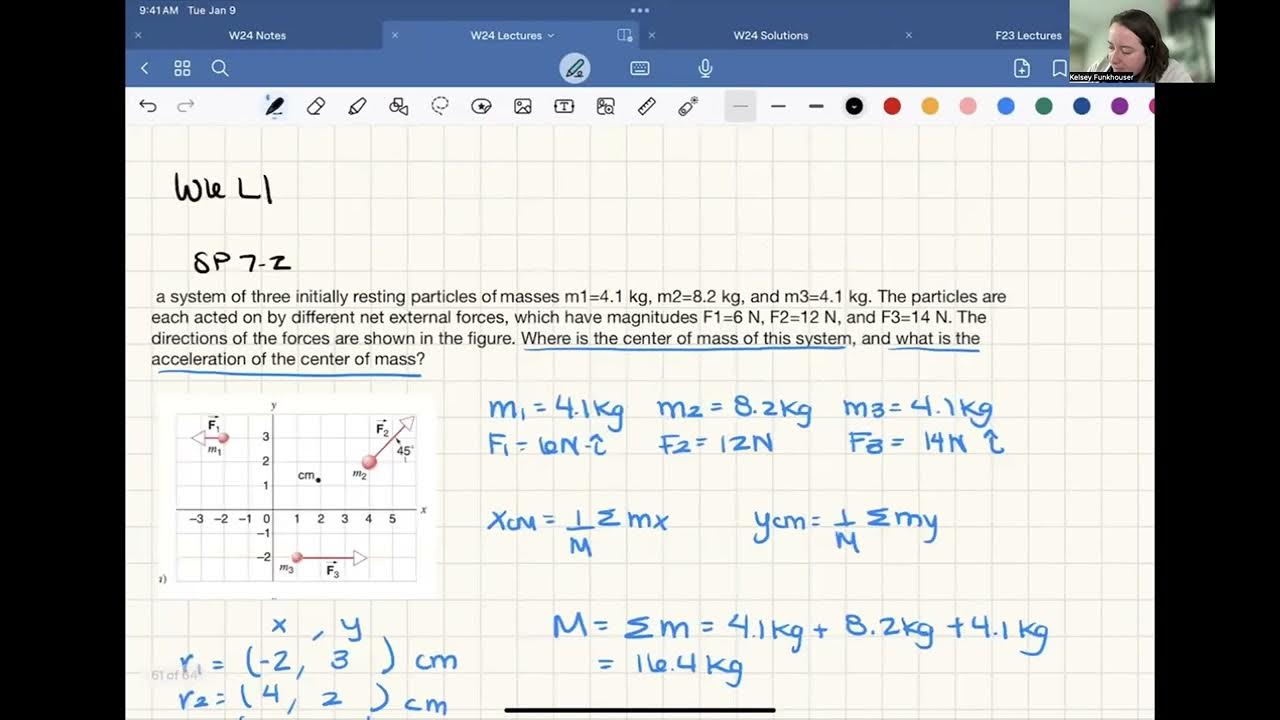 9:41 AM Tue Jan 9
W24 Notes
W24 Lectures
W24 Solutions
F23 Lectures
Kelsey Funkhouser
Wk L1
SP 7-2
a system of three initially resting particles of masses m1=4.1 kg, m2=8.2 kg, and m3=4.1 kg. The particles are
each acted on by different net external forces, which have magnitudes F1=6 N, F2=12 N, and F3=14 N. The
directions of the forces are shown in the figure. Where is the center of mass of this system, and what is the
acceleration of the center of mass?
m1 = 4.1kg m2 = 8.2kg m3 = 4.1kg
F1 = 6N -î F2 = 12N F3 = 14N î
y
F1
m1
3
2
1
F2
45°
m2
cm
x
-3 -2 -1 0 1 2 3 4 5
-1
-2
m3
F3
xcm = 1/M Σ mx ycm = 1/M Σ my
M = Σm = 4.1kg + 8.2kg + 4.1kg
= 16.4 kg
x , y
r1 = (-2, 3) cm
61 of 64
r2 = (4, 2) cm